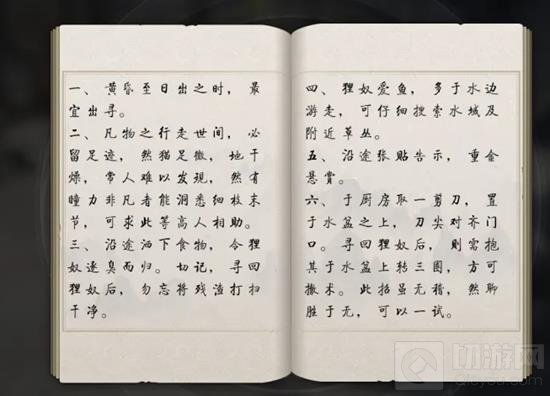 一、黄昏至日出之时，最
宜出寻。
二、凡物之行走世间，必
留足迹，然猫足微，地干
燥，常人难以发现，然有
瞳力非凡者能洞悉细枝末
节，可求此等高人相助。
三、沿途洒下食物，令狸
奴逐臭而归。切记，寻回
狸奴后，勿忘将残渣打扫
干净。
四、狸奴爱鱼，多于水边
游走，可仔细搜索水域及
附近草丛。
五、沿途张贴告示，重金
悬赏。
六、于厨房取一剪刀，置
于水盆之上，刀尖对齐门
口。寻回狸奴后，则需抱
其于水盆上转三圈，方可
撤术。此招虽无稽，然聊
胜于无，可以一试。
切游网
qieyou.com